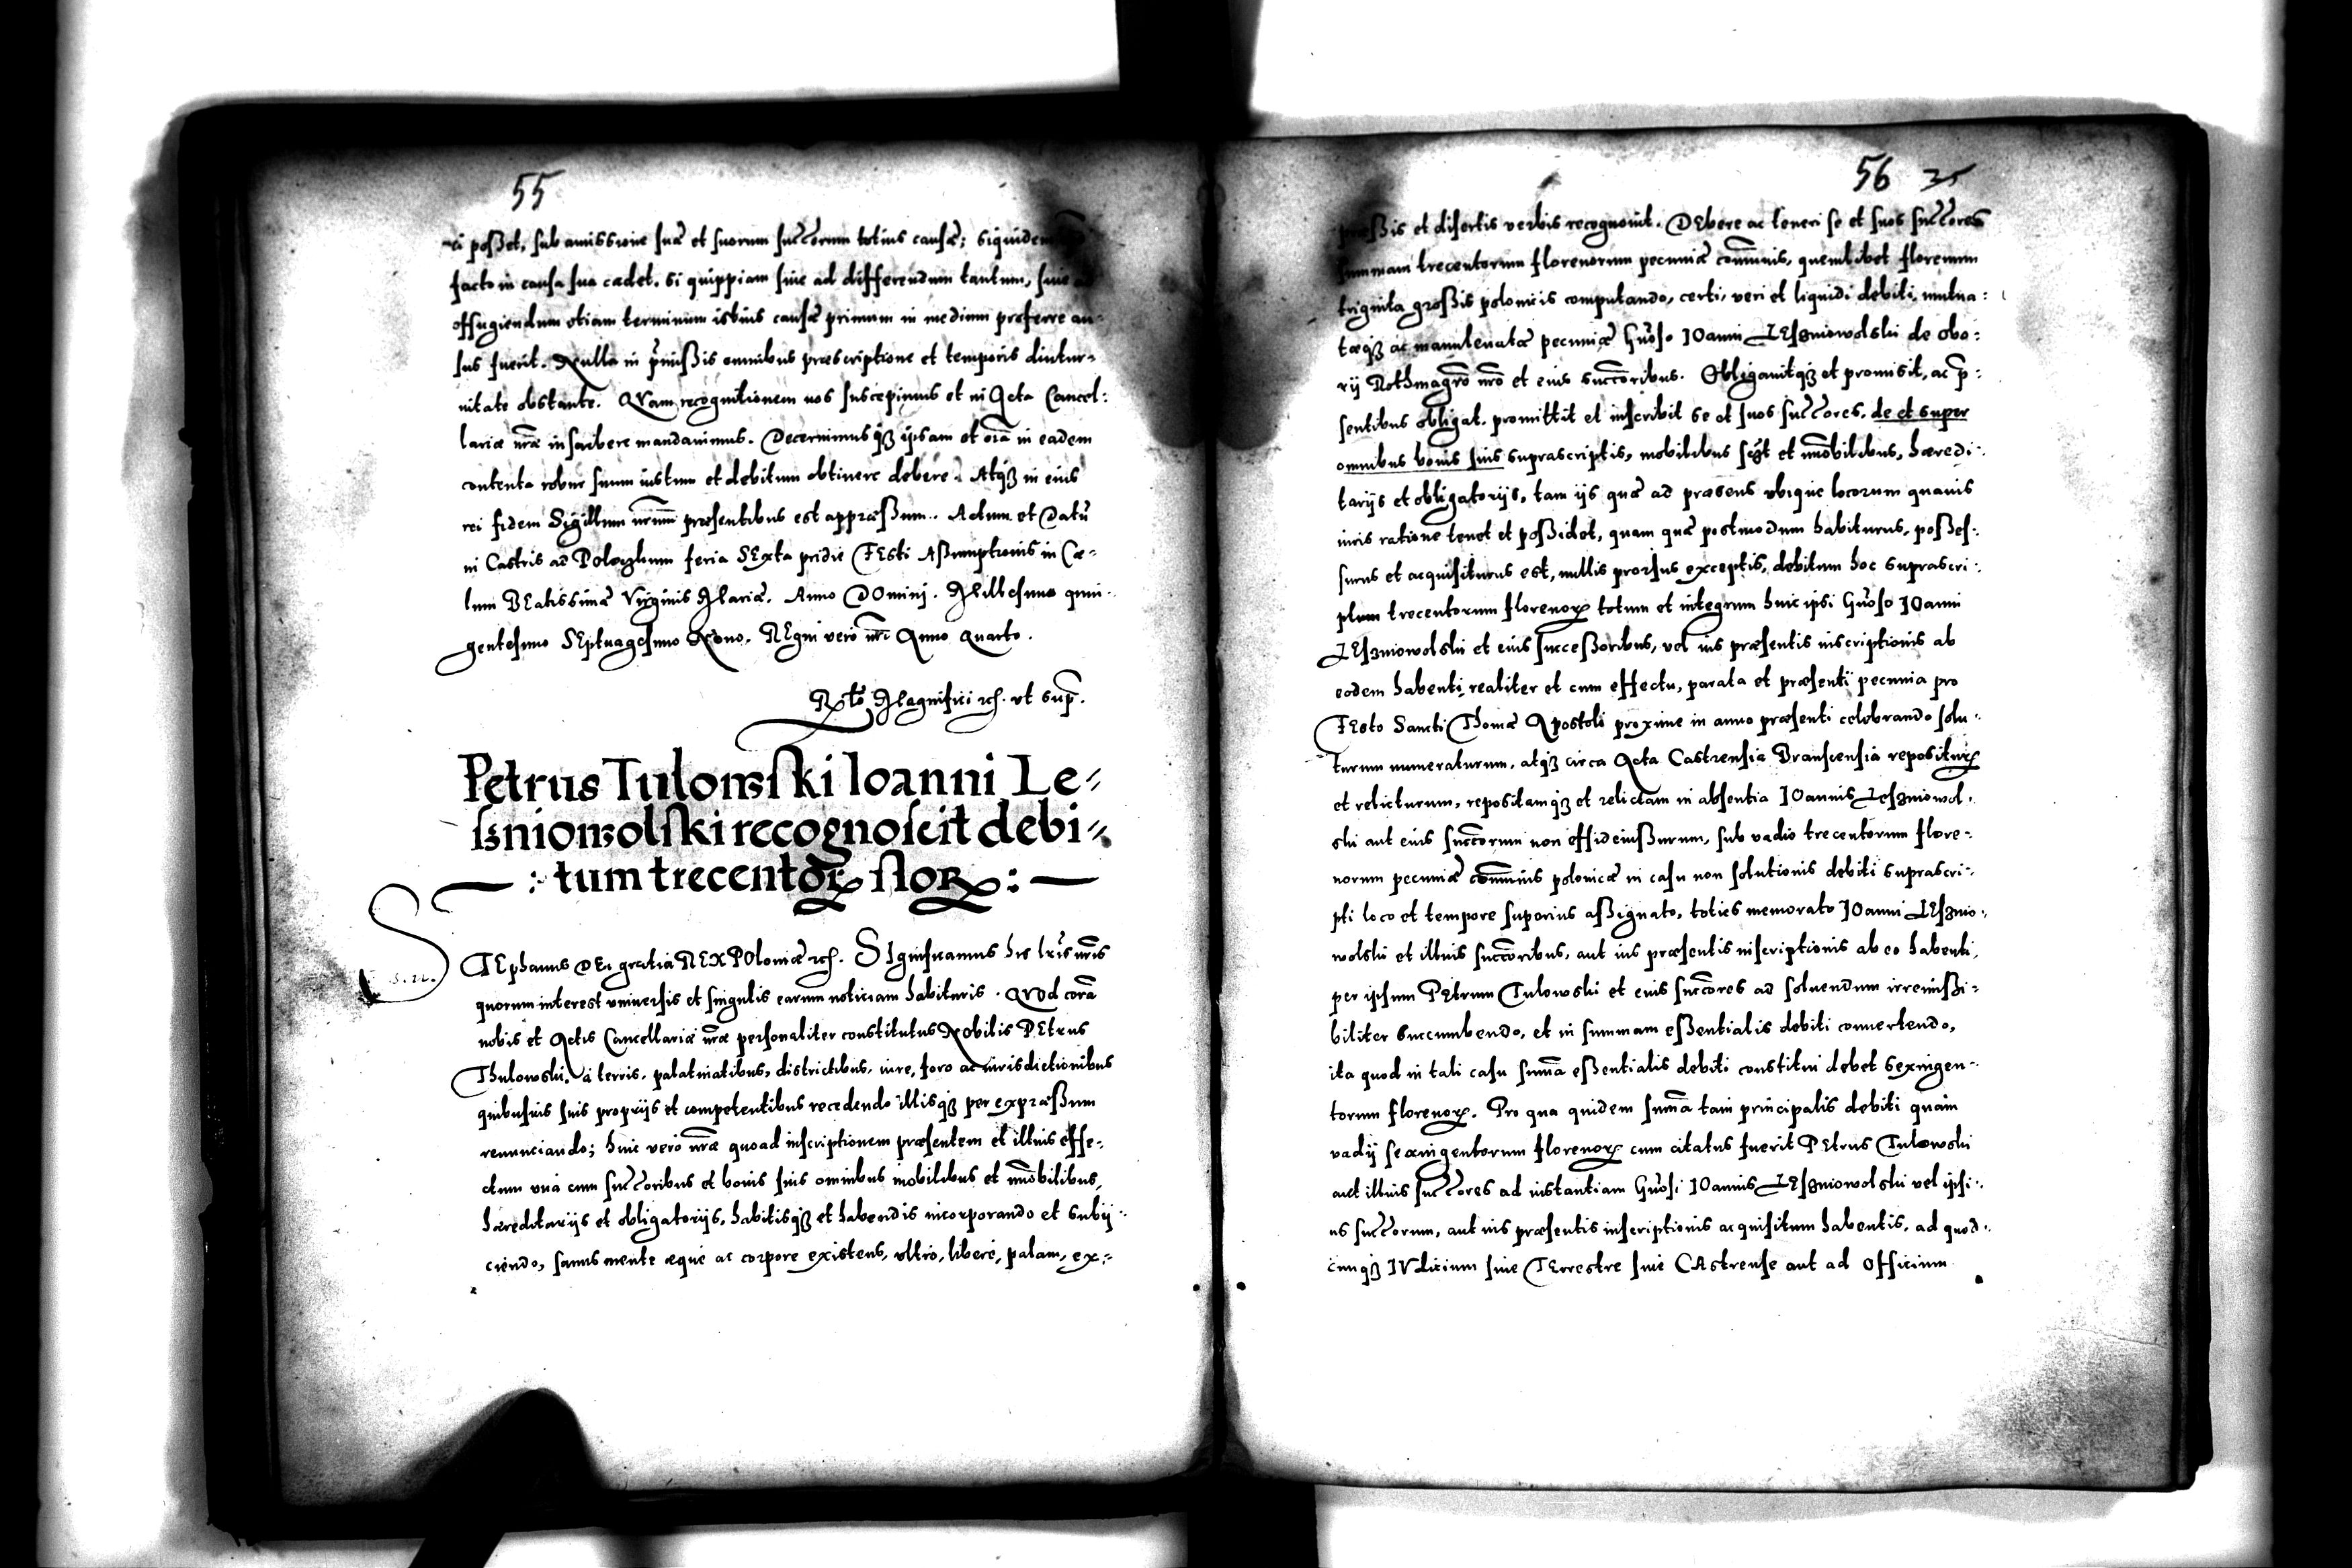 55
ci poßet, sub amissione suæ et suorum succorum totius causæ; siquidem
facto in causa sua cadet, si quippiam siue ad differendum tantum, siue ad
effugiendum etiam terminum istius causæ primum in medium proferre au-
sus fuerit. Nulla in p̃mißis omnibus præscriptione et temporis diutur-
nitate obstante. QVam recognitionem nos suscepimus et in Acta Cancel:
lariæ nr̃æ inscribere mandauimus. Decernimusq3 ipsam et oĩa in eadem
contenta robur suum iustum et debitum obtinere debere. Atq3 in eius
rei fidem Sigillum nr̃um præsentibus est appræßum. Actum et Datũ
in Castris ad Poloczkum feria SExta pridie FEsti Aßumptionis in Cœ-
lum BEatissimæ Virginis Mariæ. Anno DOmini. Millesimo quin-
gentesimo SEptuagesimo Nono. REgni vero nr̃i Anno Quarto.
Rłto Magnifici ʒc. vt sup̃.
Petrus Tulowski Ioanni Le-
sʒniowolski recognoscit debi-
: tum trecentoꝝ floꝝ :
STEphanus DEi gratia REX POloniæ ʒc. SIgnificamus his lr̃is nr̃is
quorum interest vniuersis et singulis earum noticiam habituris. QVod corã
nobis et Actis Cancellariæ nr̃æ personaliter constitutus Nobilis PEtrus
Thulowski, a terris, palatinatibus, districtibus, iure, foro ac iurisdictionibus
quibusuis suis proprijs et competentibus recedendo illisq3 per expræßum
renunciando; huic vero nr̃æ quoad inscriptionem præsentem et illius effe-
ctum vna cum succoribus et bonis suis omnibus mobilibus et im̃obilibus,
hæreditarijs et obligatorijs, habitisq3 et habendis incorporando et subij-
ciendo, sanus mente æque ac corpore existens, vltro, libere, palam, ex-
56 35
præßis et disertis verbis recognouit. DEbere ac teneri se et suos succores
summam trecentorum florenorum pecuniæ com̃unis, quemlibet florenum
triginta großis polonicis computando, certi, veri et liquidi debiti, mutua-
tæq3 ac manuleuatæ pecuniæ Gñoso IOanni LEsʒniowolski de obo-
rij Rothmagr̃o nr̃o et eius succoribus. Obligauitq3 et promisit, ac p̃-
sentibus obligat, promittit et inscribit se et suos succores, de et super
omnibus bonis suis suprascriptis, mobilibus scʒt et im̃obilibus, hæredi-
tarijs et obligatorijs, tam ijs quæ ad præsens vbique locorum quauis
iuris ratione tenet et poßidet, quam quæ postmodum habiturus, poßes-
surus et acquisiturus est, nullis prorsus exceptis, debitum hoc suprascri-
ptum trecentorum florenoꝝ totum et integrum huic ipsi Gñoso IOanni
LEsʒniowolski et eius succeßoribus, vel ius præsentis inscriptionis ab
eodem habenti, realiter et cum effectu, parata et præsenti pecunia pro
FEsto Sancti Thomæ Apostoli proxime in anno præsenti celebrando solu-
turum numeraturum, atq3 circa Acta Castrensia Branscensia repositurꝝ
et relicturum, repositamq3 et relictam in absentia IOannis LEsʒniowol-
ski aut eius succorum non effideiußurum, sub vadio trecentorum flore-
norum pecuniæ com̃unis polonicæ in casu non solutionis debiti suprascri-
pti loco et tempore superius aßignato, toties memorato IOanni LEsʒnio-
wolski et illius succoribus, aut ius præsentis inscriptionis ab eo habenti,
per ipsum PEtrum Tulowski et eius succores ad soluendum irremißi-
biliter succumbendo, et in summam eßentialis debiti conuertendo,
ita quod in tali casu sum̃a eßentialis debiti constitui debet sexingen-
torum florenoꝝ. Pro qua quidem sum̃a tam principalis debiti quam
vadij sexingentorum florenoꝝ cum citatus fuerit PEtrus Tulowski
aut illius succores ad instantiam Gñosi IOannis LEsʒniowolski vel ipsi-
us succorum, aut ius præsentis inscriptionis acquisitum habentis, ad quod-
cunq3 IVdicium siue TErrestre siue CAstrense aut ad Officium